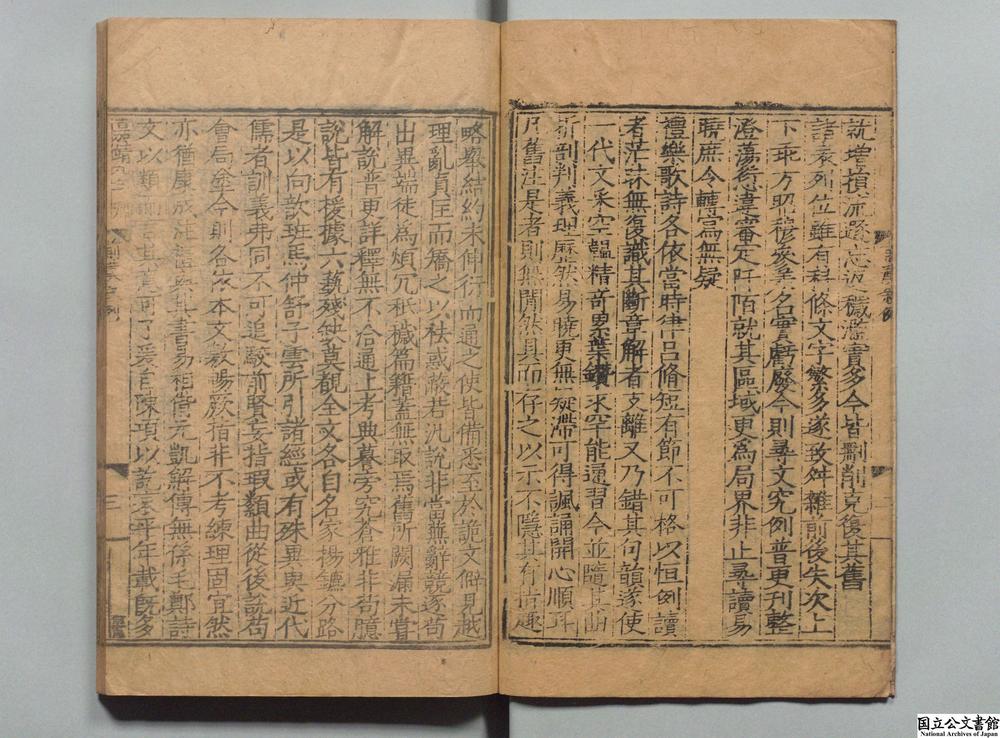 就增損流遯忘返穢濫實多今皆刪削克復其舊
諸表列位雖有科條文字繁多遂致舛雜前後失次上
下乖方昭穆參差名實虧廢今則尋文究例普更刊整
澄蕩愆違審定阡陌就其區域更爲局界非止尋讀易
曉庶令轉寫無疑
禮樂歌詩各依當時律呂脩短有節不可格以恒例讀
者茫昧無復識其斷章解者支離又乃錯其句韻遂使
一代文采空韞精奇累葉鑽求罕能通習今並隨其曲
折剖判義理歷然易曉更無疑滯可得諷誦開心順耳
凡舊注是者則無間然具而存之以示不隱其有指趣
略舉結約未伸衍而通之使皆備悉至於詭文僻見越
理亂真匡而矯之以祛惑蔽若汎說非當蕪辭競逐苟
出異端徒爲煩冗秖穢篇籍蓋無取焉舊所闕漏未嘗
解說普更詳釋無不洽通上考典謨旁究蒼雅非苟臆
說皆有援據六藝殘缺莫覩全文各自名家揚鑣分路
是以向歆班馬仲舒子雲所引諸經或有殊異與近代
儒者訓義弗同不可追駁前賢妄指瑕纇曲從後說苟
會扃塗今則各依本文敷暢厥指非不考練理固宜然
亦猶康成注禮與其書易相偝元凱解傳無係毛鄭詩
文以類而言其意可了爰自陳項以訖哀平年載既多
三
国立公文書館
National Archives of Japan